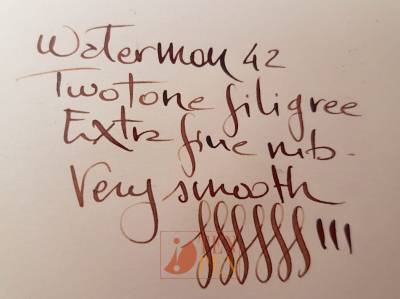 Waterman 42
Twotone filigree
Extra fine nib.
Very smooth
PEN